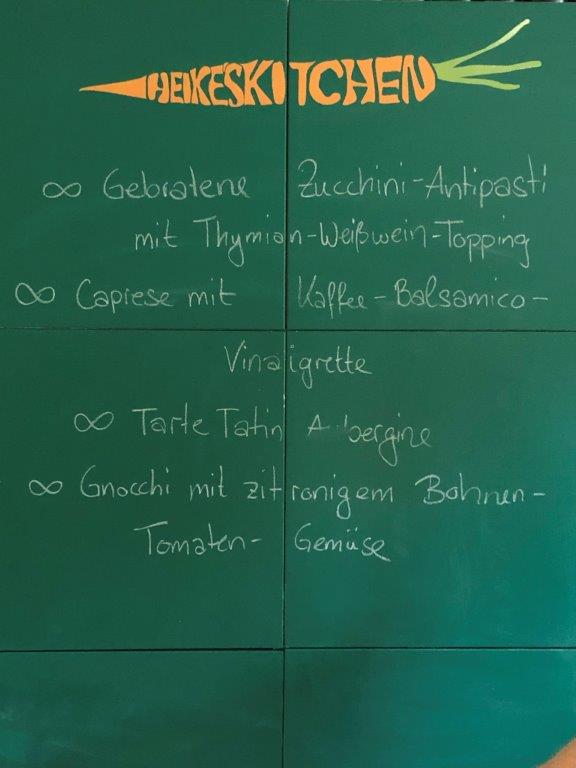 HEIKESKITCHEN
∞ Gebratene Zucchini-Antipasti
mit Thymian-Weißwein-Topping
∞ Caprese mit Kaffee-Balsamico-
Vinaigrette
∞ Tarte Tatin A bergine
∞ Gnocchi mit zitronigem Bohnen-
Tomaten- Gemüse